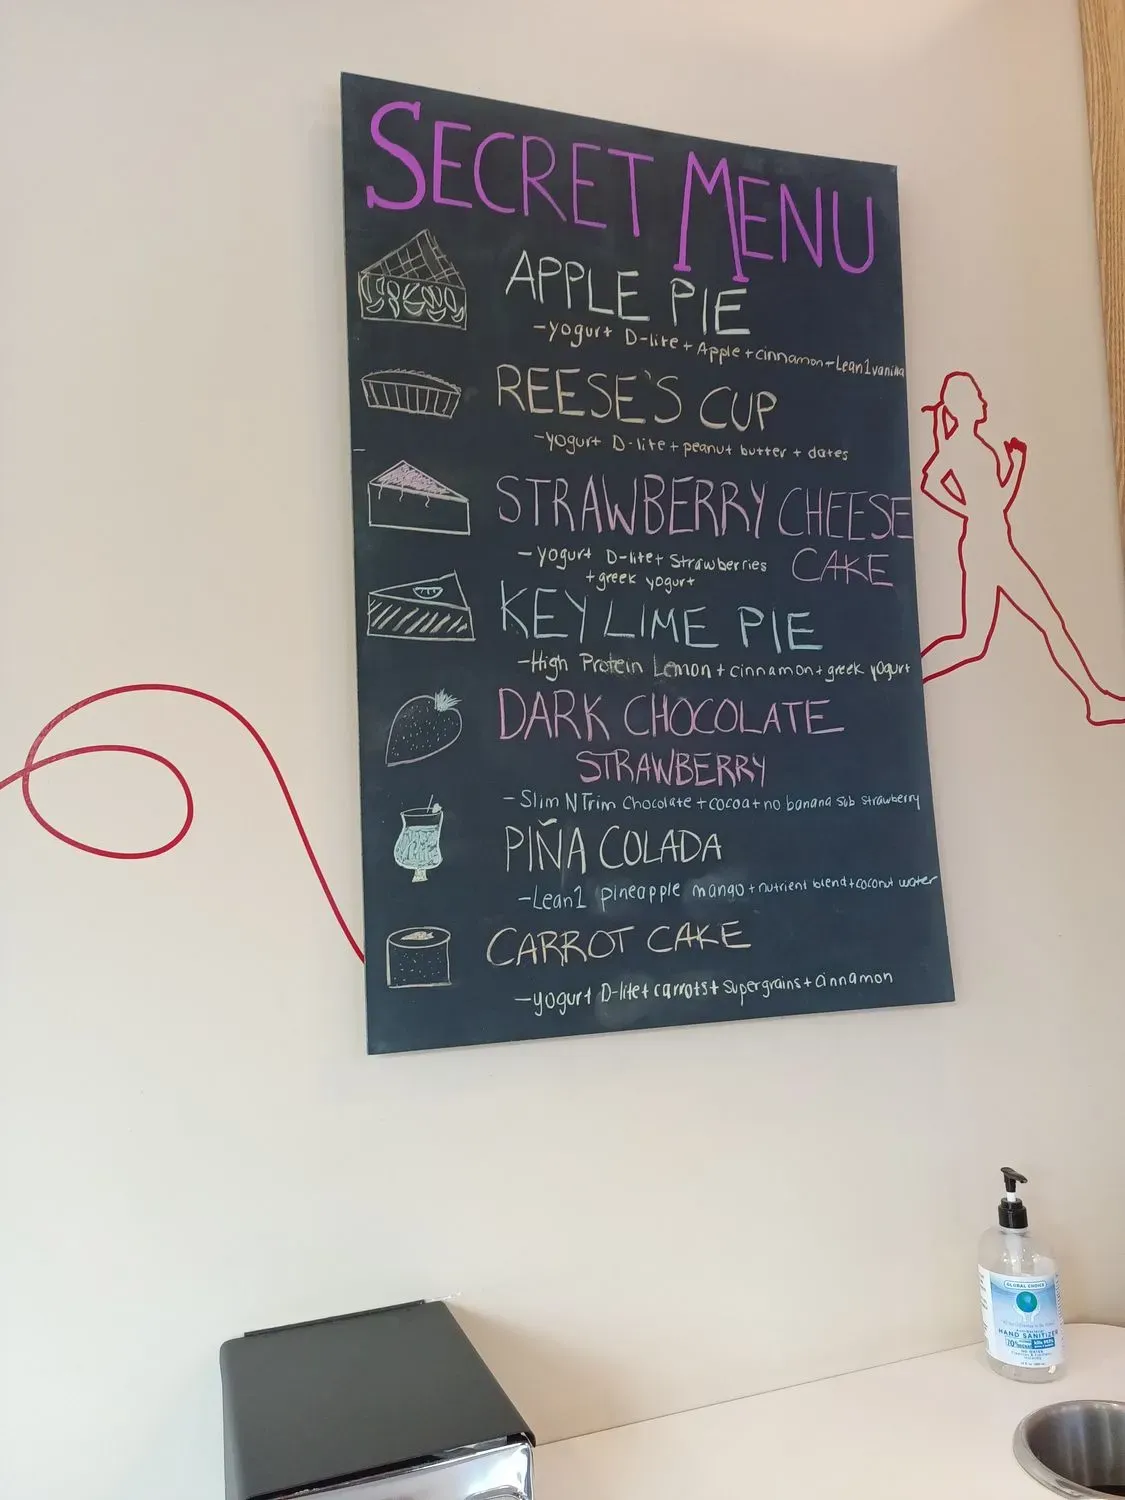 SECRET MENU
APPLE PIE
-yogurt D-lite + Apple + cinnamon + Lean1 vanilla
REESE'S CUP
-yogurt D-lite + peanut butter + dates
STRAWBERRY CHEESE
CAKE
-yogurt D-lite + Strawberries
+ greek yogurt
KEY LIME PIE
-High Protein Lemon + cinnamon + greek yogurt
DARK CHOCOLATE
STRAWBERRY
-Slim N Trim Chocolate + cocoa + no banana sub strawberry
PIÑA COLADA
-Lean1 pineapple mango + nutrient blend + coconut water
CARROT CAKE
-yogurt D-lite + carrots + supergrains + cinnamon
GLOBAL CHOICE
HAND SANITIZER
70%